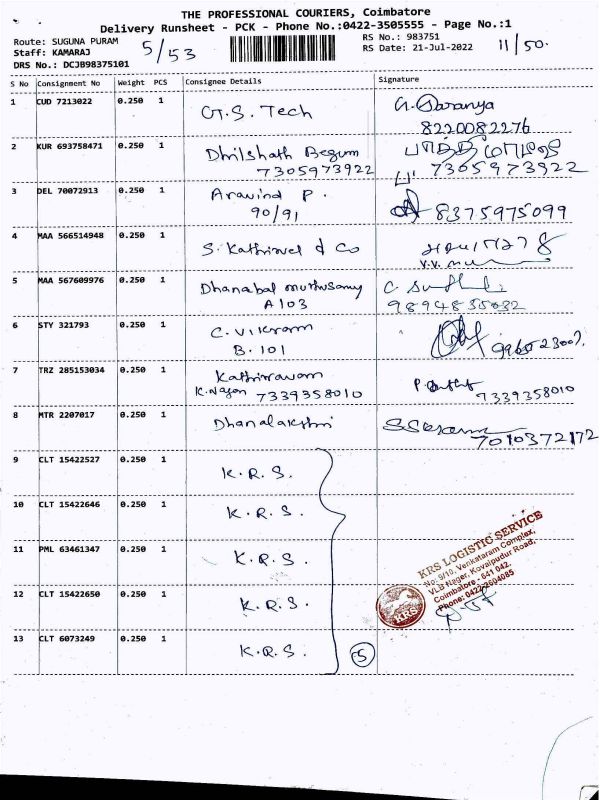 THE PROFESSIONAL COURIERS, Coimbatore
Delivery Runsheet - PCK - Phone No.:0422-3505555 - Page No.:1
Route: SUGUNA PURAM 5/53 RS No.: 983751 11/50.
Staff: KAMARAJ RS Date: 21-Jul-2022
DRS No.: DCJB98375101
S No Consignment No Weight PCS Consignee Details Signature
1 CUD 7213022 0.250 1 G.S. Tech G. Saranya
8220082276
2 KUR 693758471 0.250 1 Dhilshath Begum
7305973922 7305973922
3 DEL 70072913 0.250 1 Aravind P.
90/91 8375975099
4 MAA 566514948 0.250 1 S. Kathirvel & Co
5 MAA 567609976 0.250 1 Dhanabal muthusamy
A103
6 STY 321793 0.250 1 C. Vikram
B.101
7 TRZ 285153034 0.250 1 Kathirravan
K. Nagar 7339358010 7339358010
8 MTR 2207017 0.250 1 Dhanalakshmi
7010372172
9 CLT 15422527 0.250 1 K.R.S.
10 CLT 15422646 0.250 1 K.R.S.
11 PML 63461347 0.250 1 K.R.S.
12 CLT 15422650 0.250 1 K.R.S.
13 CLT 6073249 0.250 1 K.R.S. 5
KRS LOGISTIC SERVICE
No. 9/10, Venkataram Complex,
VLB Nager, Kovaipudur Road,
Coimbatore - 641 042.
Phone: 0422-2604085
KRS